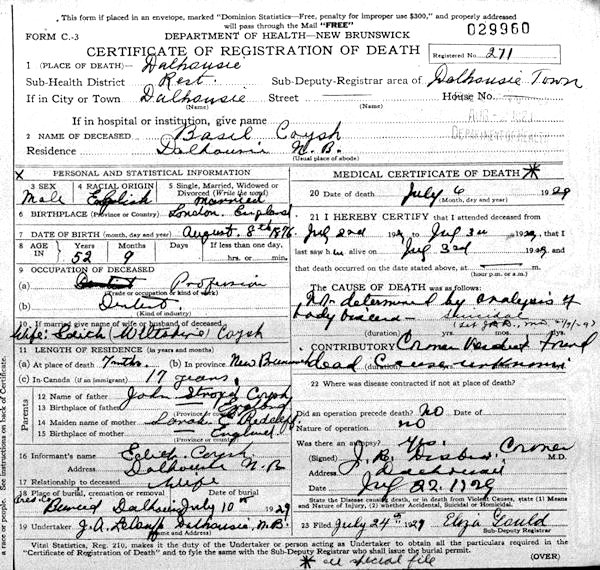 This form if placed in an envelope, marked "Dominion Statistics—Free, penalty for improper use $300," and properly addressed
will pass through the Mail "FREE"
029960
FORM C.-3 DEPARTMENT OF HEALTH—NEW BRUNSWICK
CERTIFICATE OF REGISTRATION OF DEATH
Registered No. 271
1 (PLACE OF DEATH)— Dalhousie
Sub-Health District Rest. Sub-Deputy-Registrar area of Dalhousie Town
If in City or Town Dalhousie Street House No.
(Name) (Name)
If in hospital or institution, give name
2 NAME OF DECEASED Basil Coysh
Residence Dalhousie N.B.
(Usual place of abode)
X PERSONAL AND STATISTICAL INFORMATION
3 SEX Male 4 RACIAL ORIGIN English 5 Single, Married, Widowed or Divorced (Write the word) Married
6 BIRTHPLACE (Province or Country) London England
7 DATE OF BIRTH (month, day and year) August 8th 1876
8 AGE IN Years 52 Months 9 Days If less than one day, hrs. or min.
9 OCCUPATION OF DECEASED
(a) Dentist Profession
(Trade or occupation or kind of work)
(b) Dentist
(Kind of industry)
10 If married give name of wife or husband of deceased
Wife: Edith (Wiltshire) Coysh
11 LENGTH OF RESIDENCE (in years and months)
(a) At place of death 7 mths. (b) in province New Brunswick
(c) In Canada (if an immigrant) 17 years
Parents
12 Name of father John Coysh
13 Birthplace of father England
(Province or Country)
14 Maiden name of mother Sarah E.
15 Birthplace of mother England
(Province or Country)
16 Informant's name Edith Coysh
Address Dalhousie N.B.
17 Relationship to deceased Wife
18 Place of burial, cremation or removal Date of burial
Dalhousie July 10th 1929
19 Undertaker J.A. Dalhousie, N.B.
(Name and Address)
MEDICAL CERTIFICATE OF DEATH *
20 Date of death July 6 1929
(Month, day and year)
21 I HEREBY CERTIFY that I attended deceased from
July 2nd 1929, to July 3rd 1929, and
last saw him alive on July 3rd 1929, and
that death occurred on the date stated above, at
(hour p.m. or a.m.)
The CAUSE OF DEATH was as follows:
Not determined by analysis of
body viscera - suicidal
(duration) yrs. mos. ds.
CONTRIBUTORY Coroner Verdict Found
dead Cause unknown
(duration)
22 Where was disease contracted if not at place of death?
Did an operation precede death? NO Date of
Nature of operation no
Was there an autopsy? Yes. Coroner
(Signed) J. B. M.D.
Address Dalhousie
Date July 22. 1929
State the Disease causing death, or in death from Violent Causes, state (1) Means
and Nature of Injury, (2) whether Accidental, Suicidal or Homicidal.
23 Filed July 24th 1929 Eliza Gould
Sub-Deputy Registrar
Vital Statistics, Reg. 210, makes it the duty of the Undertaker or person acting as Undertaker to obtain all the particulars required in the
"Certificate of Registration of Death" and to fyle the same with the Sub-Deputy Registrar who shall issue the burial permit.
(OVER)
* see special file
a race or people. See instructions on back of Certificate.